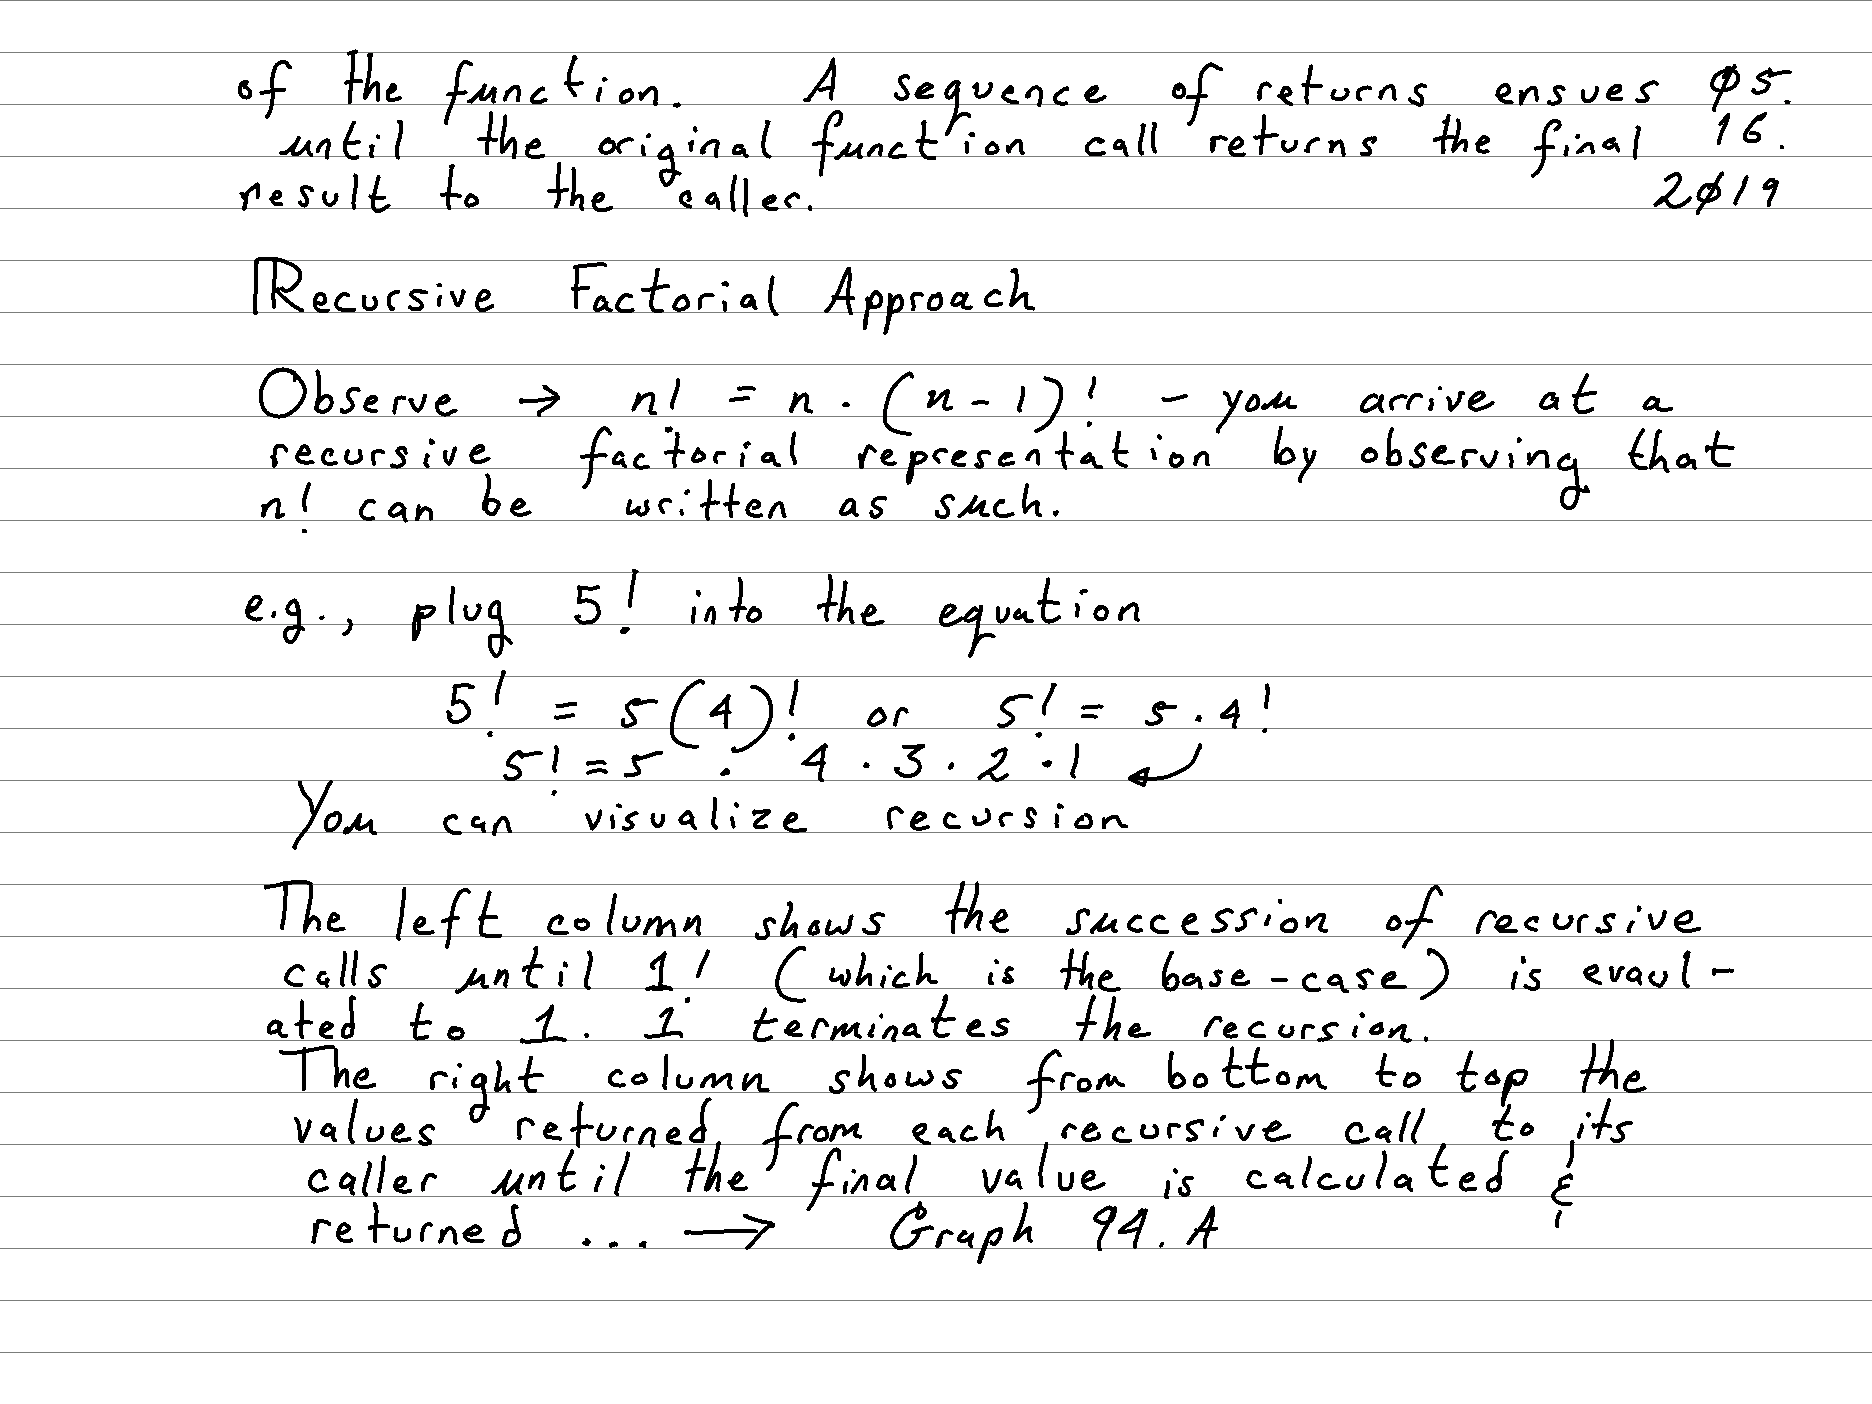 of the function. A sequence of returns ensues Ø5.
until the original function call returns the final 16.
result to the caller. 2Ø19
Recursive Factorial Approach
Observe → n! = n · (n - 1)! - you arrive at a
recursive factorial representation by observing that
n! can be written as such.
e.g., plug 5! into the equation
5! = 5(4)! or 5! = 5 · 4!
5! = 5 · 4 · 3 · 2 · 1 ↙
You can visualize recursion
The left column shows the succession of recursive
calls until 1! (which is the base-case) is evaul-
ated to 1. 1 terminates the recursion.
The right column shows from bottom to top the
values returned, from each recursive call, to its
caller until the final value is calculated &
returned ... → Graph 94.A